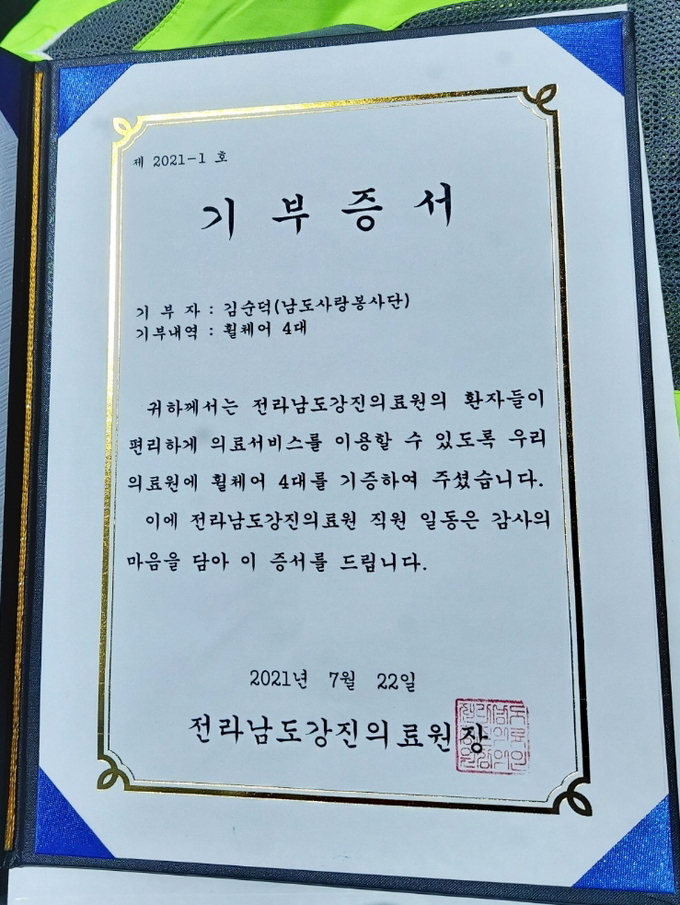 제 2021-1 호
기 부 증 서
기 부 자 : 김순덕(남도사랑봉사단)
기부내역 : 휠체어 4대
귀하께서는 전라남도강진의료원의 환자들이
편리하게 의료서비스를 이용할 수 있도록 우리
의료원에 휠체어 4대를 기증하여 주셨습니다.
이에 전라남도강진의료원 직원 일동은 감사의
마음을 담아 이 증서를 드립니다.
2021년 7월 22일
전라남도강진의료원장